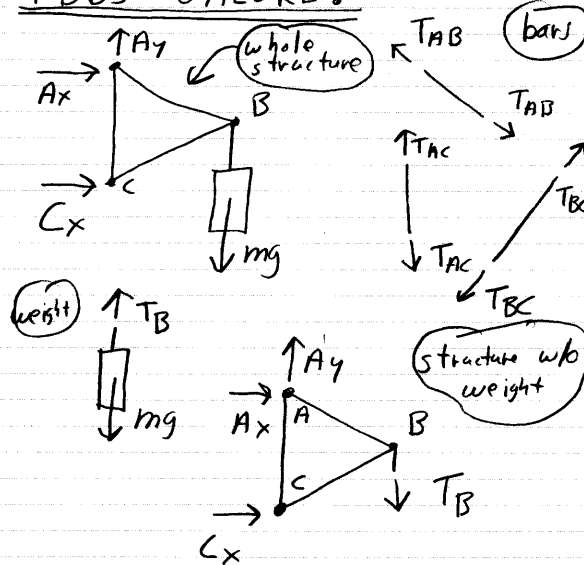 ↑Ay
whole
structure
Ax
B
C
Cx
mg
bars
TAB
TAB
TAC
TAC
TBC
TBC
weight
TB
mg
structure w/o
weight
Ay
Ax
A
B
C
TB
Cx